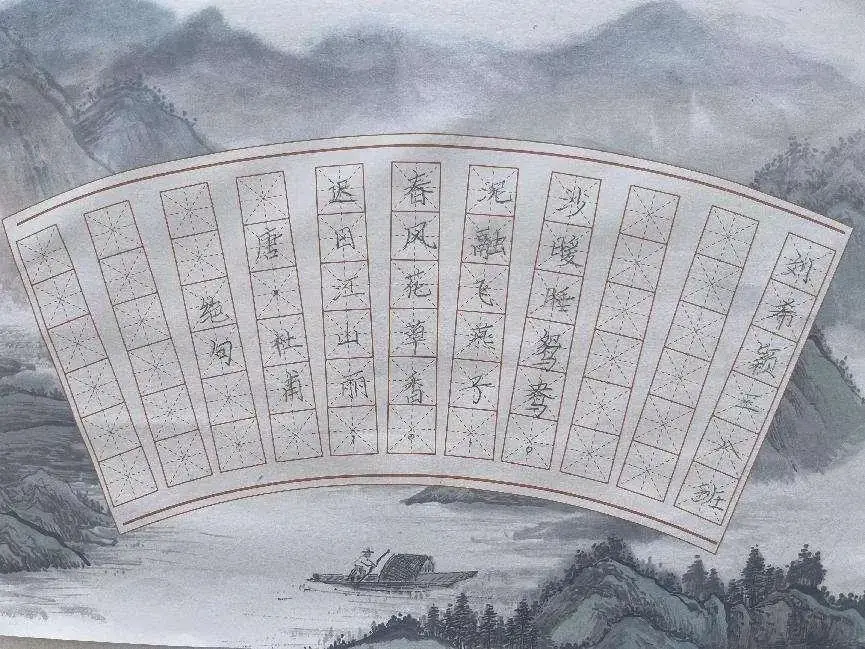 绝句
唐·杜甫
迟日江山丽，
春风花草香。
泥融飞燕子，
沙暖睡鸳鸯。
刘希颖三八班